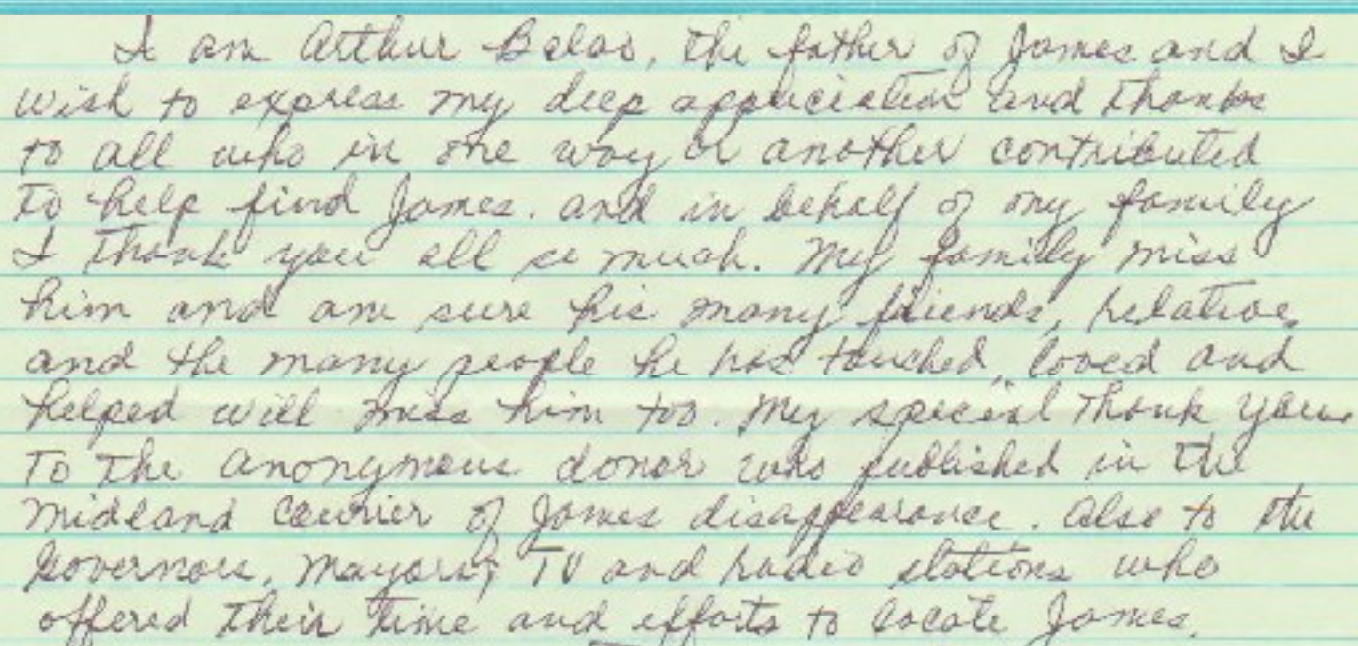 I am Arthur Balao, the father of James and I
wish to express my deep appreciation and thanks
to all who in one way or another contributed
to help find James. and in behalf of my family
I thank you all so much. My family miss
him and am sure his many friends, relative,
and the many people he has touched, loved and
helped will miss him too. My special thank you
to the anonymous donor who published in the
Midland Courier of James disappearance. Also to the
Governors, Mayors, TV and radio stations who
offered their time and efforts to locate James.